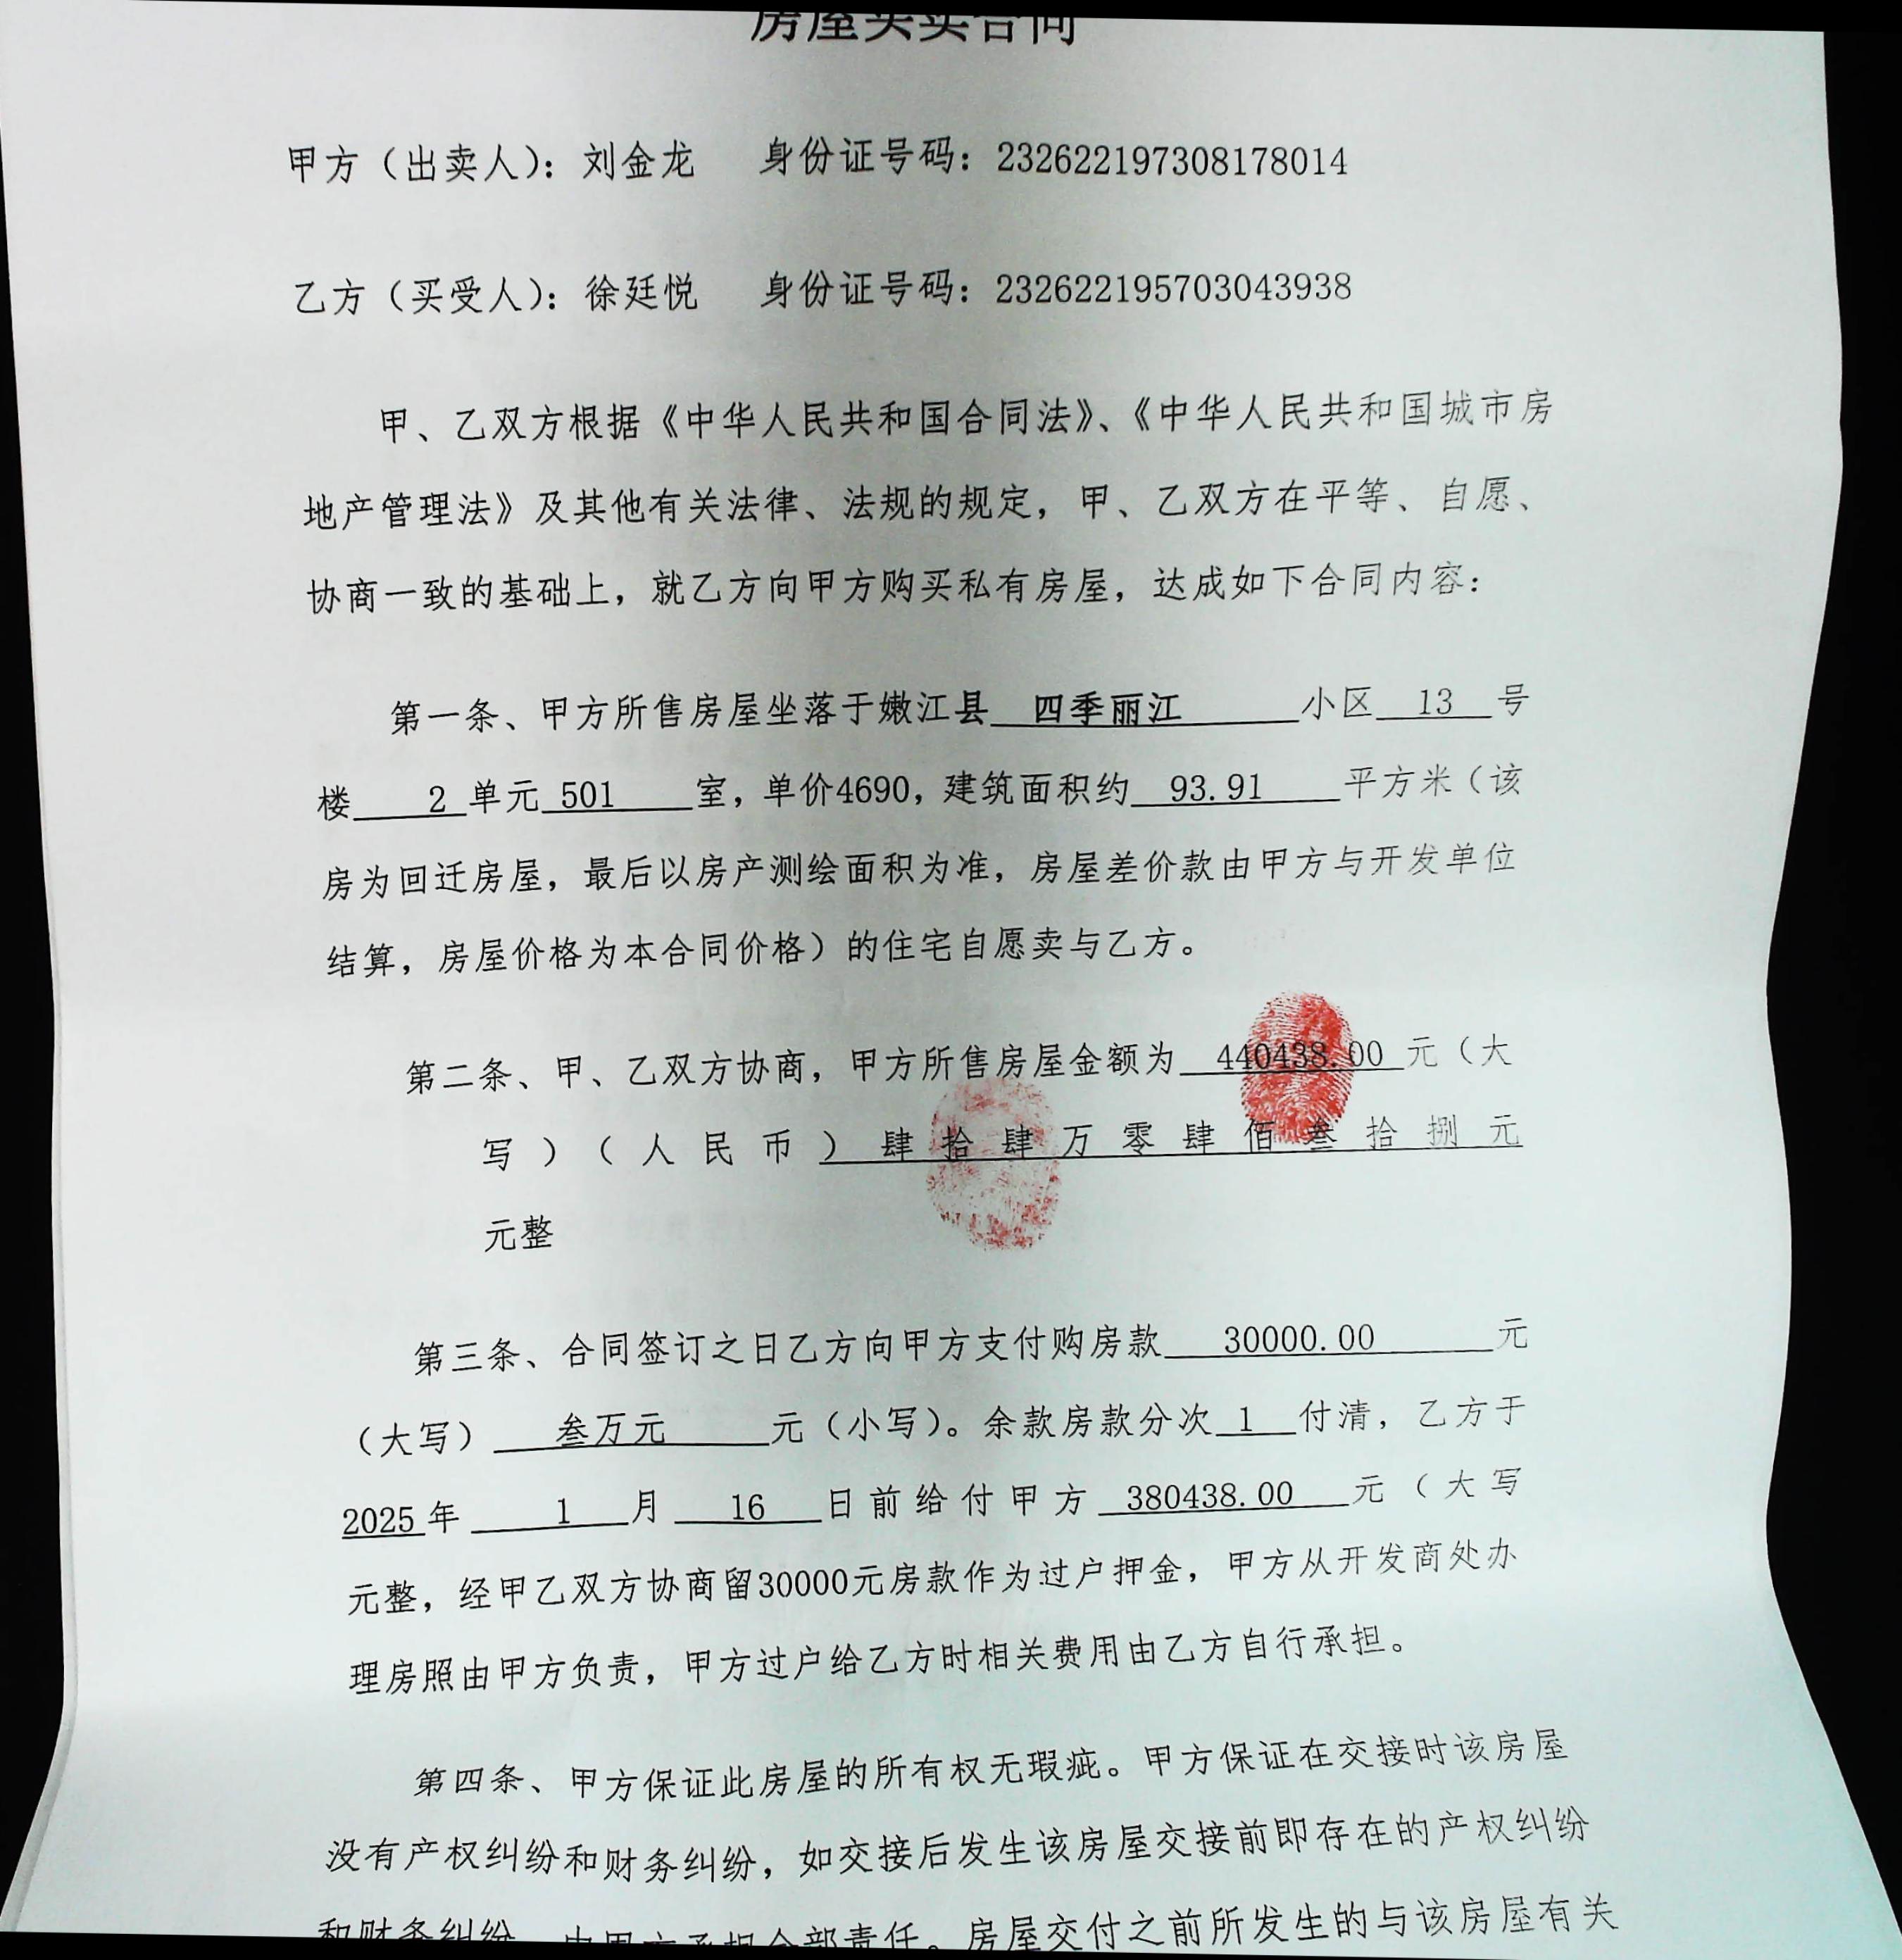 房屋买卖合同
甲方（出卖人）：刘金龙 身份证号码：232622197308178014
乙方（买受人）：徐廷悦 身份证号码：232622195703043938
甲、乙双方根据《中华人民共和国合同法》、《中华人民共和国城市房
地产管理法》及其他有关法律、法规的规定，甲、乙双方在平等、自愿、
协商一致的基础上，就乙方向甲方购买私有房屋，达成如下合同内容：
第一条、甲方所售房屋坐落于嫩江县 四季丽江 小区 13 号
楼 2 单元 501 室，单价4690，建筑面积约 93.91 平方米（该
房为回迁房屋，最后以房产测绘面积为准，房屋差价款由甲方与开发单位
结算，房屋价格为本合同价格）的住宅自愿卖与乙方。
第二条、甲、乙双方协商，甲方所售房屋金额为 440438.00 元（大
写）（人民币）肆拾肆万零肆佰叁拾捌元
元整
第三条、合同签订之日乙方向甲方支付购房款 30000.00 元
（大写） 叁万元 元（小写）。余款房款分次 1 付清，乙方于
2025年 1 月 16 日前给付甲方 380438.00 元（大写
元整，经甲乙双方协商留30000元房款作为过户押金，甲方从开发商处办
理房照由甲方负责，甲方过户给乙方时相关费用由乙方自行承担。
第四条、甲方保证此房屋的所有权无瑕疵。甲方保证在交接时该房屋
没有产权纠纷和财务纠纷，如交接后发生该房屋交接前即存在的产权纠纷
和财务纠纷，由甲方承担全部责任。房屋交付之前所发生的与该房屋有关